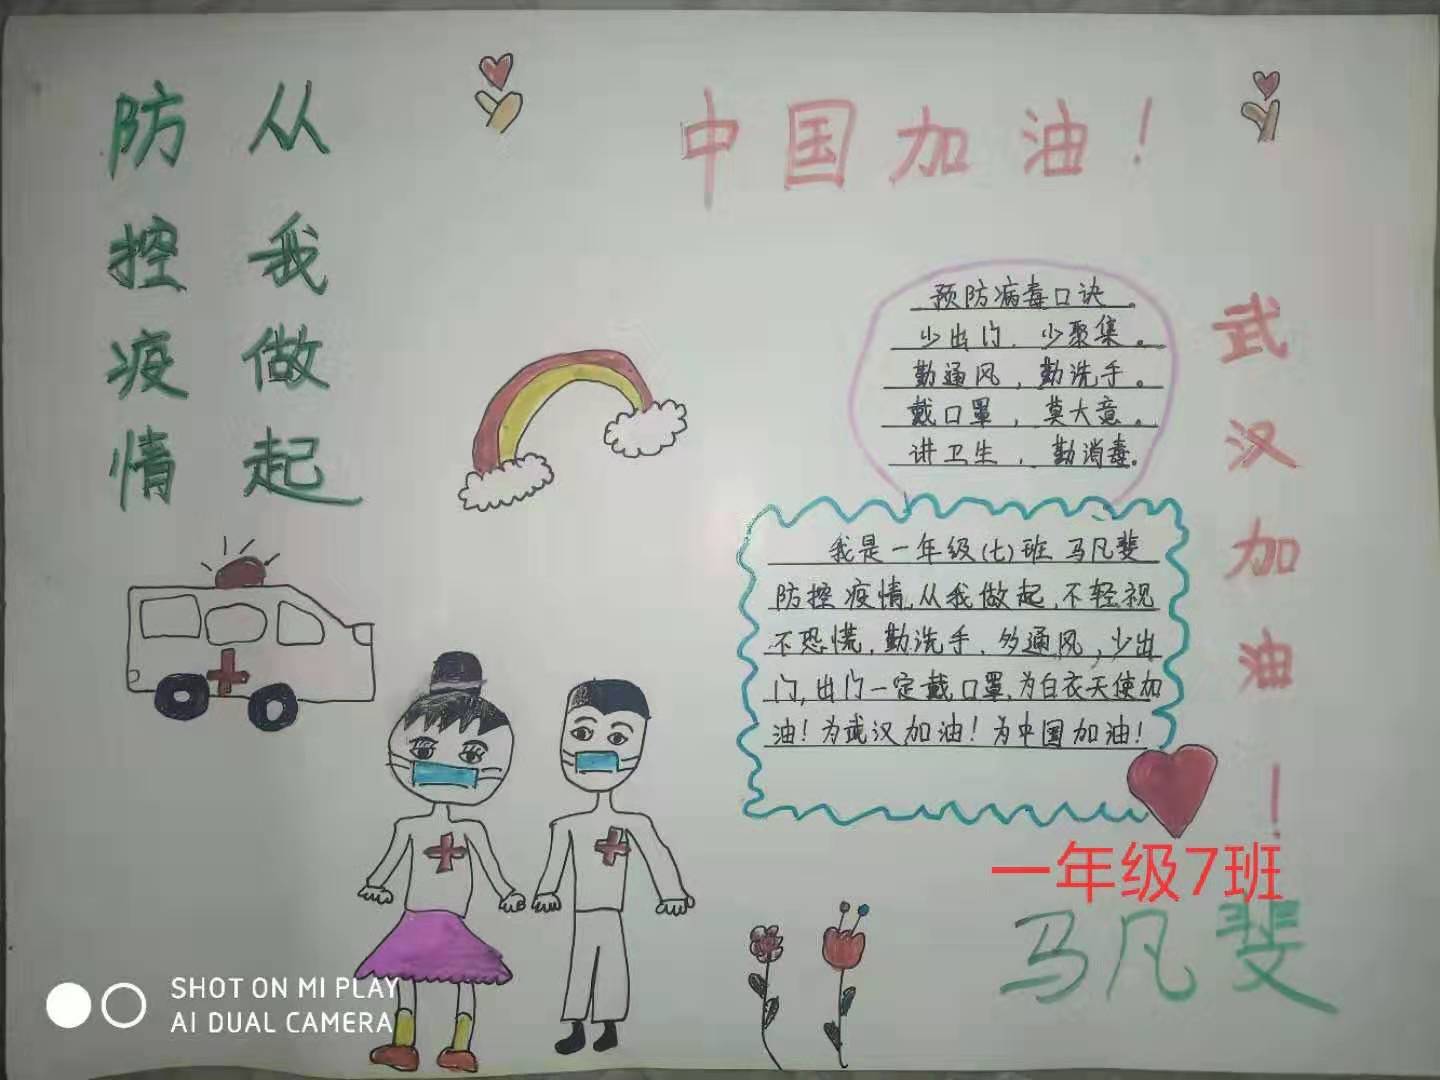 防控疫情
从我做起
中国加油！
武汉加油！
预防病毒口诀。
少出门，少聚集。
勤通风，勤洗手。
戴口罩，莫大意。
讲卫生，勤消毒。
我是一年级(七)班 马凡斐
防控疫情,从我做起,不轻视
不恐慌,勤洗手、多通风,少出
门,出门一定戴口罩,为白衣天使加
油！为武汉加油！为中国加油！
一年级7班
马凡斐
SHOT ON MI PLAY
AI DUAL CAMERA